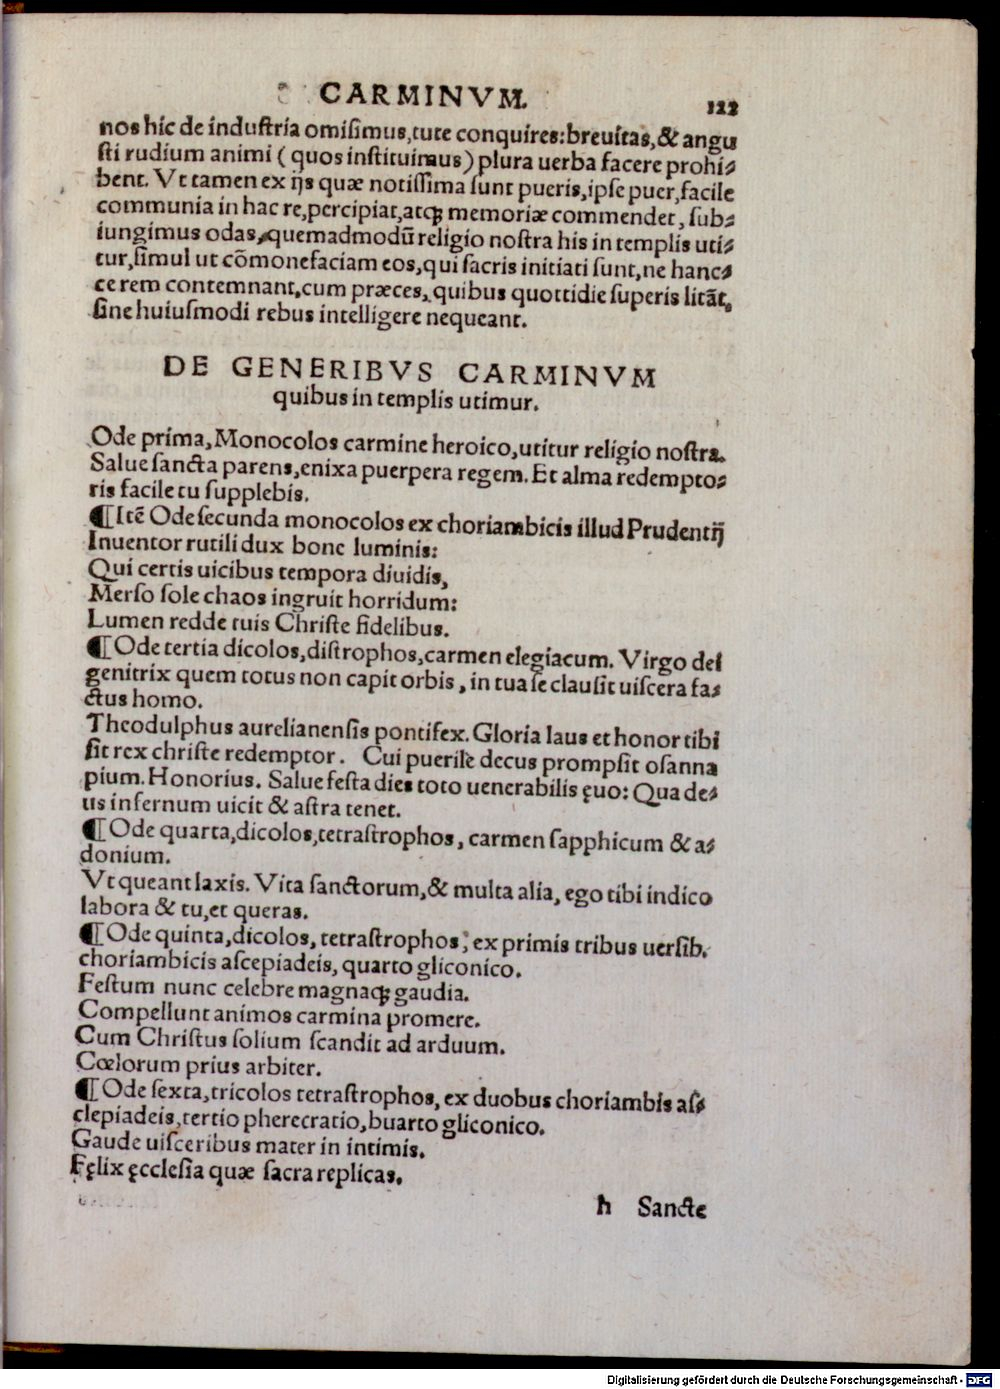 CARMINVM.
122
nos hic de induſtria omiſimus,tute conquires:breuitas,& angu
ſti rudium animi ( quos inſtituimus ) plura uerba facere prohi⸗
bent. Vt tamen ex ijs quæ notiſſima ſunt pueris,ipſe puer,facile
communia in hac re,percipiat,atqꝫ memoriæ commendet, ſub⸗
iungimus odas,quemadmodū religio noſtra his in templis uti⸗
tur,ſimul ut cōmonefaciam eos,qui ſacris initiati ſunt,ne hanc⸗
ce rem contemnant,cum præces, quibus quottidie ſuperis litāt,
ſine huiuſmodi rebus intelligere nequeant.
DE GENERIBVS CARMINVM
quibus in templis utimur.
Ode prima,Monocolos carmine heroico,utitur religio noſtra.
Salue ſancta parens,enixa puerpera regem. Et alma redempto⸗
ris facile tu ſupplebis.
¶Itē Ode ſecunda monocolos ex choriambicis illud Prudentij
Inuentor rutili dux bone luminis:
Qui certis uicibus tempora diuidis,
Merſo ſole chaos ingruit horridum:
Lumen redde tuis Chriſte fidelibus.
¶Ode tertia dicolos,diſtrophos,carmen elegiacum. Virgo dei
genitrix quem totus non capit orbis , in tua ſe clauſit uiſcera fa⸗
ctus homo.
Theodulphus aurelianenſis pontifex. Gloria laus et honor tibi
ſit rex chriſte redemptor. Cui puerile decus prompſit oſanna
pium. Honorius. Salue feſta dies toto uenerabilis ęuo: Qua de⸗
us infernum uicit & aſtra tenet.
¶Ode quarta,dicolos,tetraſtrophos, carmen ſapphicum & a⸗
donium.
Vt queant laxis. Vita ſanctorum,& multa alia, ego tibi indico
labora & tu,et queras.
¶Ode quinta,dicolos, tetraſtrophos, ex primis tribus uerſib.
choriambicis aſcepiadeis, quarto gliconico.
Feſtum nunc celebre magnaqꝫ gaudia.
Compellunt animos carmina promere.
Cum Chriſtus ſolium ſcandit ad arduum.
Cœlorum prius arbiter.
¶Ode ſexta,tricolos tetraſtrophos, ex duobus choriambis aſ⸗
clepiadeis,tertio pherecratio,buarto gliconico.
Gaude uiſceribus mater in intimis.
Fęlix ęccleſia quæ ſacra replicas.
h Sancte
Digitalisierung gefördert durch die Deutsche Forschungsgemeinschaft - DFG